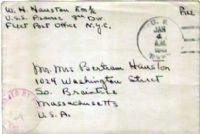 W. H. Hauston Em/c
U.S.S. Div.
Fleet Post Office N.Y.C.
Free
U.S.
JAN
4
A.M.
Mr. Mrs Bertram Hauston
1024 Washington Street
So. Braintree
Massachusetts
U.S.A.